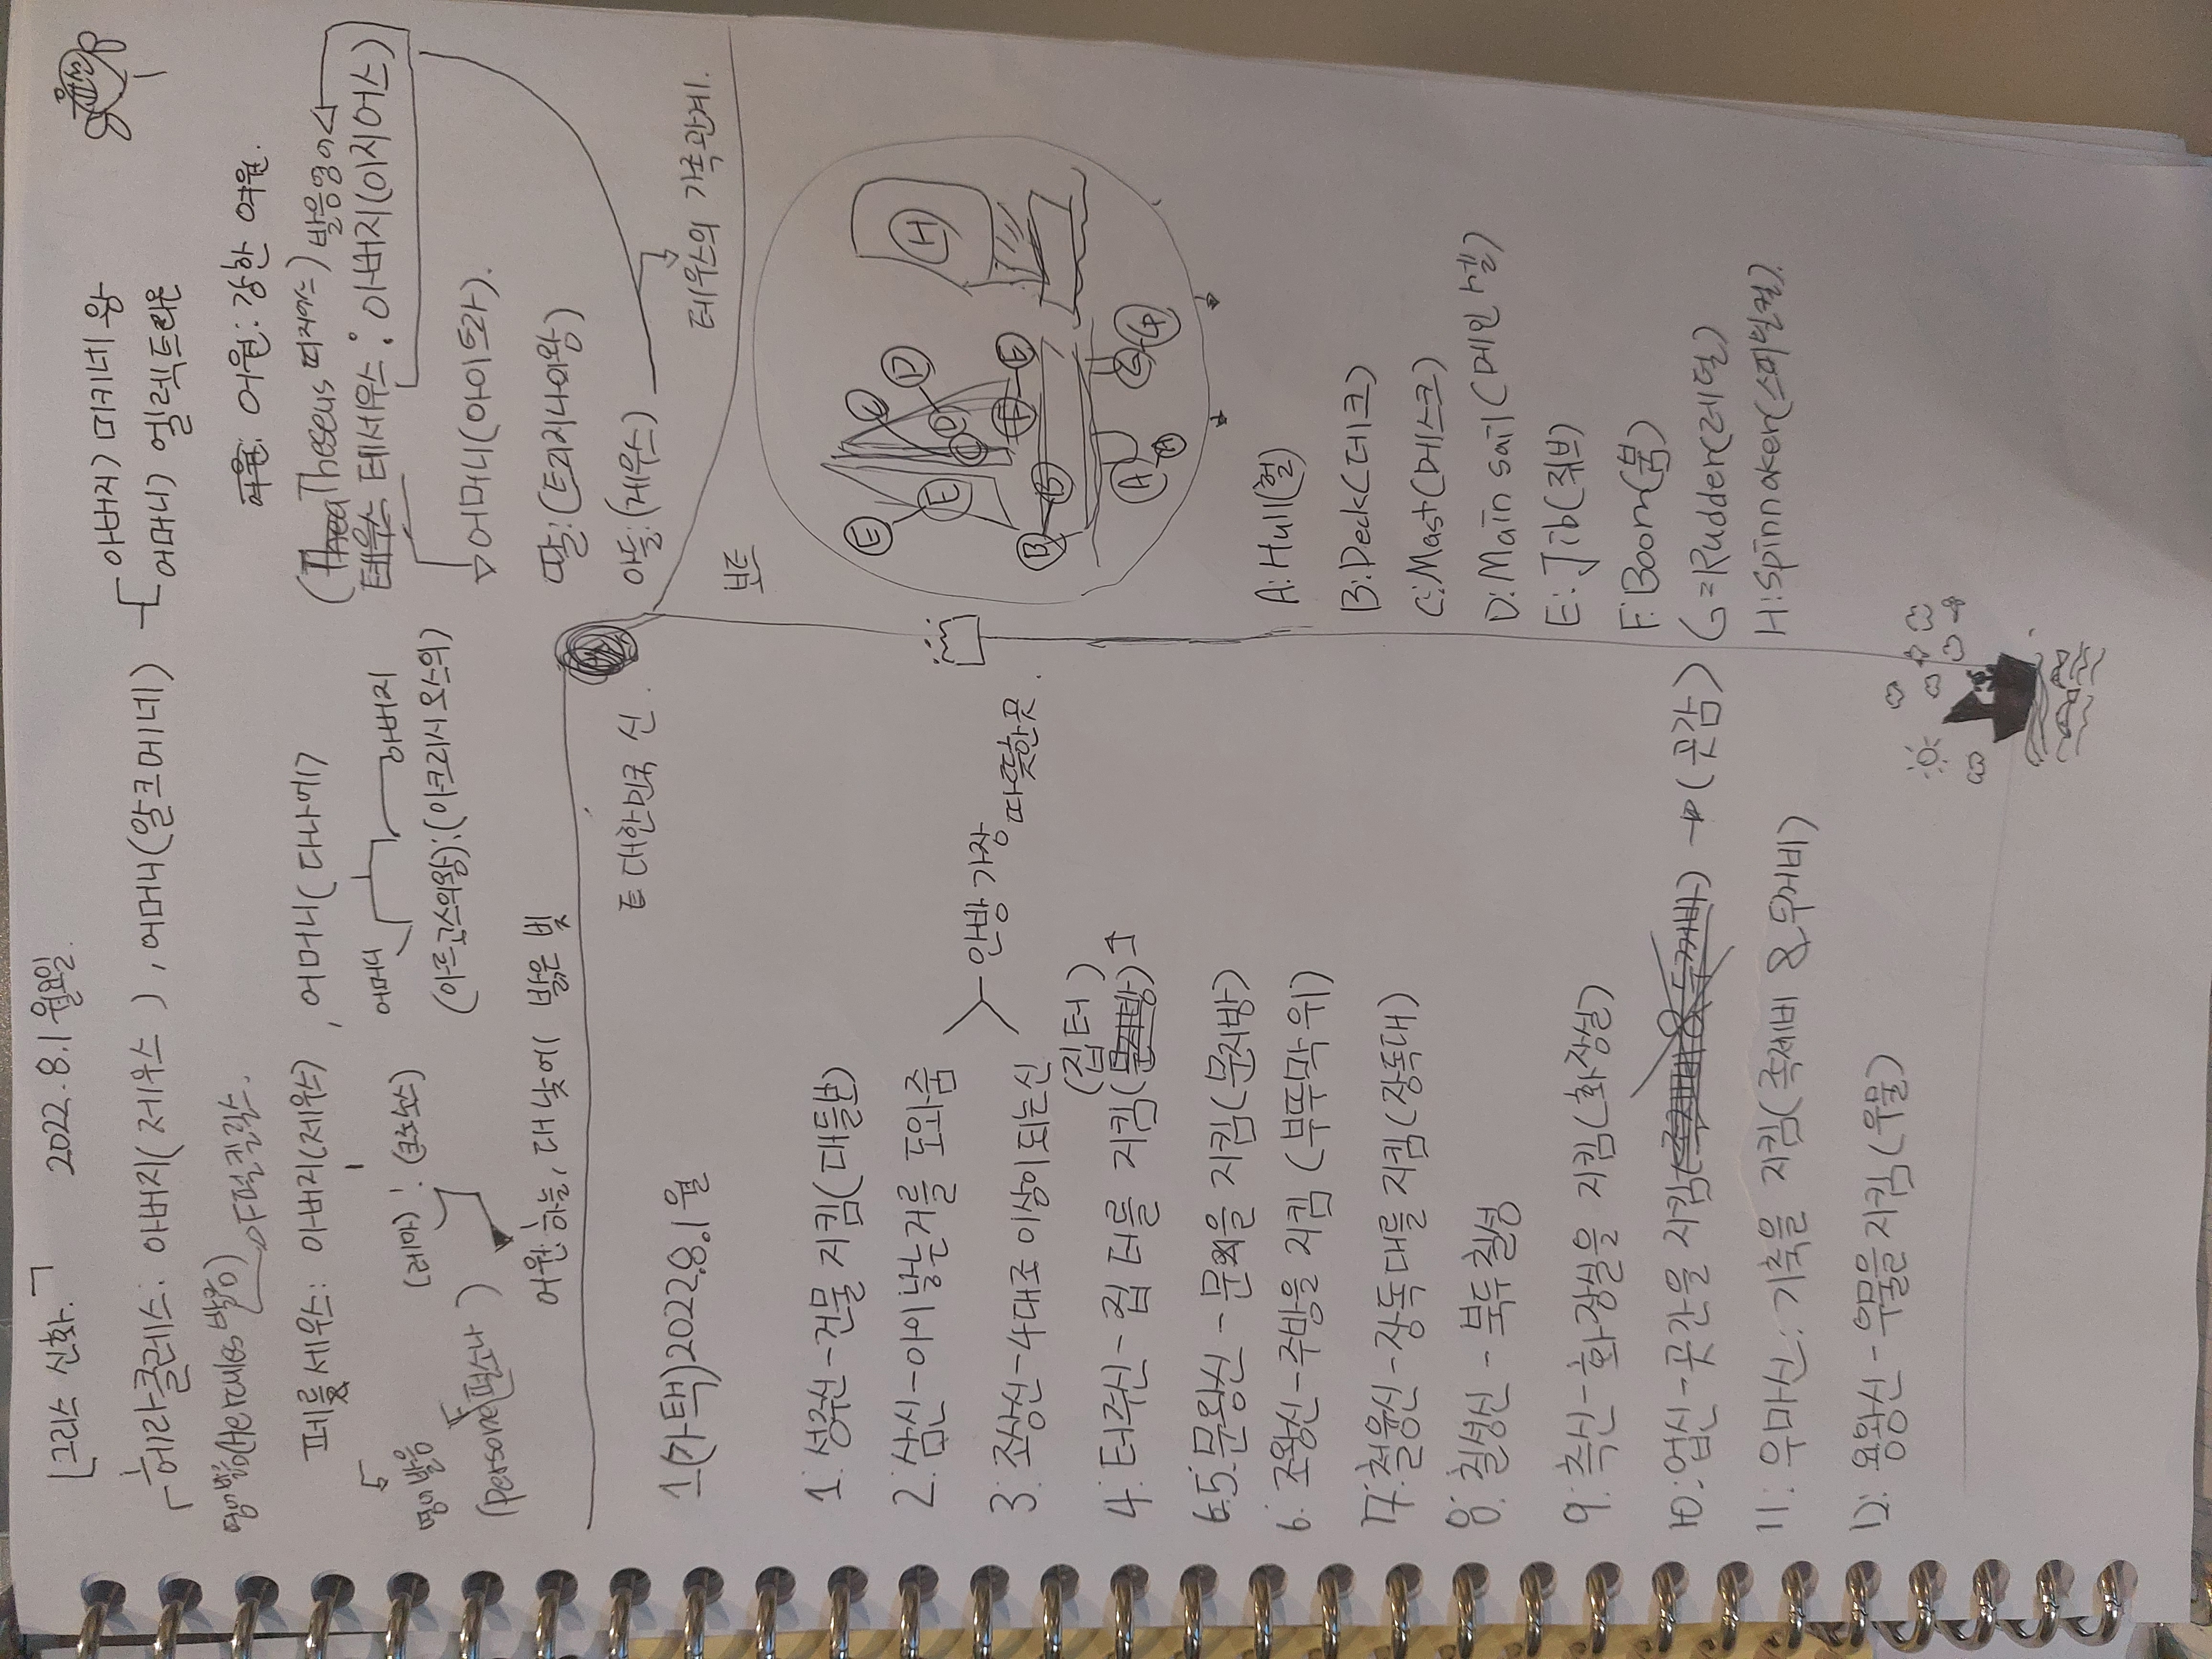 [그리스 신화.] 2022.8.1 월요일
헤라클레스: 아버지(제우스), 어머니(알크메네)
아버지) 미키네 왕
어머니) 엘렉트리온
어원: 강한 여월.
페르세우스: 아버지(제우스), 어머니(다나에)
어머니 아버지
(아르고스의왕):(아크리시오스의)
(레아):(크로노스)
영어발음
어원:하늘, 대낮에 밝은 빛
(Theseus 띠지어스) 발음영어
테세우스: 아버지(이지어스)
어머니(아이트라).
딸:(트리지나의왕)
아들:(제우스)
테우스의 가족관계.
대한민국 신.
1(가택)2022.8.1월
1: 성주신-건물 지킴(대들보)
2: 삼신-아이낳는거를 도와줌
3: 조상신-4대조 이상이되는신
안방 가장 따뜻한곳.
4: 터주신-집 터를 지킴
(집터)
5: 문왕신-문을 지킴(문지방)
6: 조왕신-주방을 지킴(부뚜막위)
7: 철융신-장독대를 지킴(장독대)
8: 칠성신-북두칠성
9: 측신-화장실을 지킴(화장실)
10: 업신-곳간을 지킴 → (곳감)
11: 우마신: 가축을 지킴(족제비 & 두꺼비)
12: 용왕신-우물을지킴(우물)
보트
E
E
C
D
D
C
F
E
H
B
B
A
A
G
G
A: Hull(헐)
B: Deck(데크)
C: Mast(메스크)
D: Main sail(메인 세일)
E: Jib(쥐브)
F: Boom(붐)
G=Rudder(러덜)
H: Spinnaker(스피넌컬).